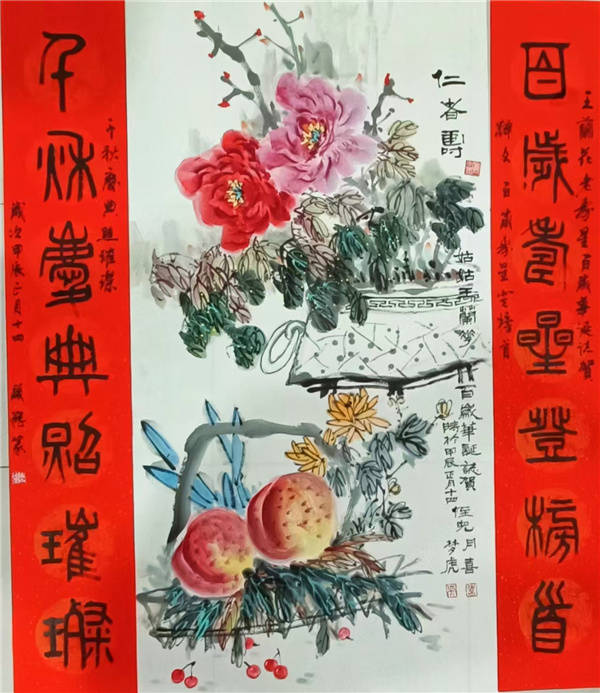 百歲壽星登榜首
王蘭花老壽星百歲華誕誌賀
釋文百歲壽星登榜首
仁者壽
姑姑王蘭花百歲華誕誌賀
時於甲辰正月十四侄兒月喜
夢虎
千秋慶典照璀璨
千秋慶典照璀璨
歲次甲辰正月十四